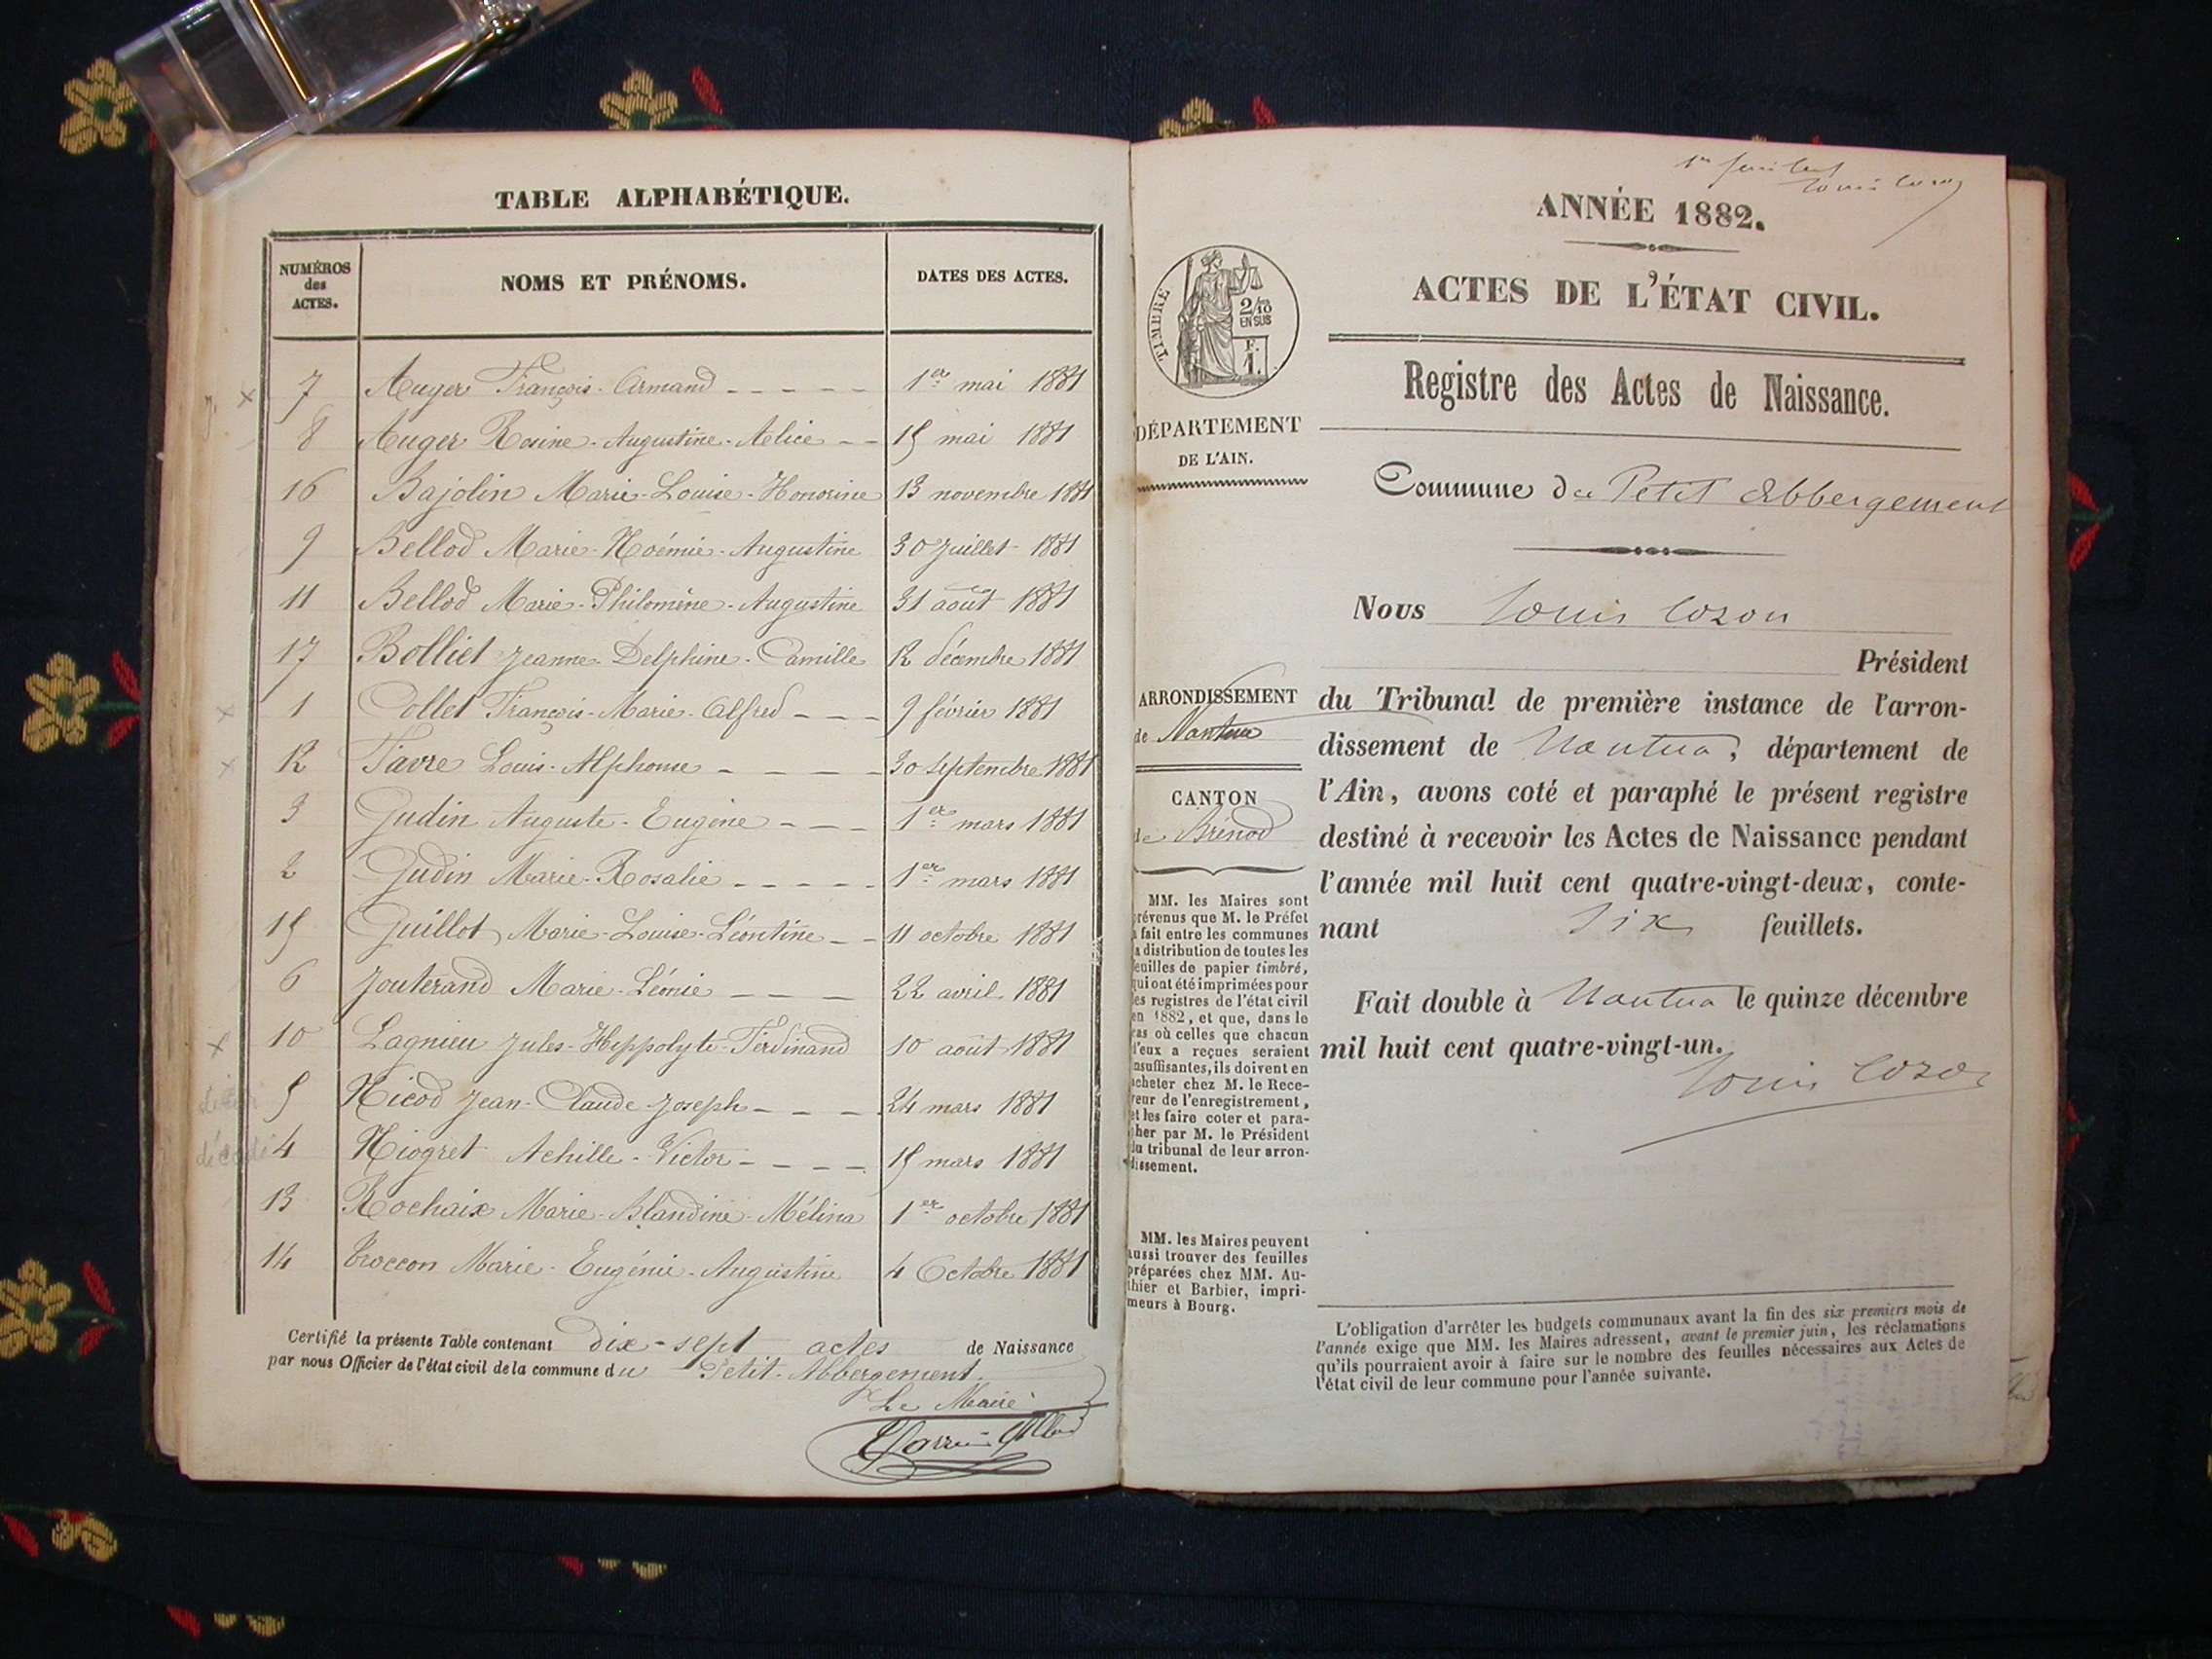 TABLE ALPHABÉTIQUE.
NUMÉROS des ACTES. NOMS ET PRÉNOMS. DATES DES ACTES.
7 Auger François-Armand 1er mai 1881
8 Auger Rosine-Augustine-Alice 15 mai 1881
16 Bajolin Marie-Louise-Honorine 13 novembre 1881
9 Bellod Marie-Noémie-Augustine 30 juillet 1881
11 Bellod Marie-Philomène-Augustine 31 août 1881
17 Bolliet Jeanne-Delphine-Camille 12 décembre 1881
1 Collet François-Marie-Alfred 9 février 1881
12 Favre Louis-Alphonse 30 septembre 1881
3 Gudin Auguste-Eugène 1er mars 1881
2 Gudin Marie-Rosalie 1er mars 1881
15 Guillot Marie-Louise-Léontine 11 octobre 1881
6 Jouterand Marie-Léonie 22 avril 1881
10 Lagnieu Jules-Hippolyte-Ferdinand 10 août 1881
5 Nicod Jean-Claude-Joseph 24 mars 1881
décédé 4 Niogret Achille-Victor 15 mars 1881
13 Rochaix Marie-Blandine-Mélina 1er octobre 1881
14 Troccon Marie-Eugénie-Augustine 4 Octobre 1881
Certifié la présente Table contenant dix-sept actes de Naissance
par nous Officier de l'état civil de la commune du Petit-Abbergement.
Le Maire
1er feuillet
Louis Cozon
ANNÉE 1882.
ACTES DE L'ÉTAT CIVIL.
TIMBRE
2/10
EN SUS
F.
1.
Registre des Actes de Naissance.
DÉPARTEMENT
DE L'AIN.
Commune du Petit Abbergement
Nous Louis Cozon
Président
ARRONDISSEMENT
de Nantua
CANTON
de Brénod
du Tribunal de première instance de l'arron-
dissement de Nantua, département de
l'Ain, avons coté et paraphé le présent registre
destiné à recevoir les Actes de Naissance pendant
l'année mil huit cent quatre-vingt-deux, conte-
nant six feuillets.
Fait double à Nantua le quinze décembre
mil huit cent quatre-vingt-un.
Louis Cozon
MM. les Maires sont
prévenus que M. le Préfet
a fait entre les communes
la distribution de toutes les
feuilles de papier timbré,
qui ont été imprimées pour
les registres de l'état civil
en 1882, et que, dans le
cas où celles que chacun
d'eux a reçues seraient
insuffisantes, ils doivent en
acheter chez M. le Rece-
veur de l'enregistrement,
et les faire coter et para-
pher par M. le Président
du tribunal de leur arron-
dissement.
MM. les Maires peuvent
aussi trouver des feuilles
préparées chez MM. Au-
thier et Barbier, impri-
meurs à Bourg.
L'obligation d'arrêter les budgets communaux avant la fin des six premiers mois de
l'année exige que MM. les Maires adressent, avant le premier juin, les réclamations
qu'ils pourraient avoir à faire sur le nombre des feuilles nécessaires aux Actes de
l'état civil de leur commune pour l'année suivante.